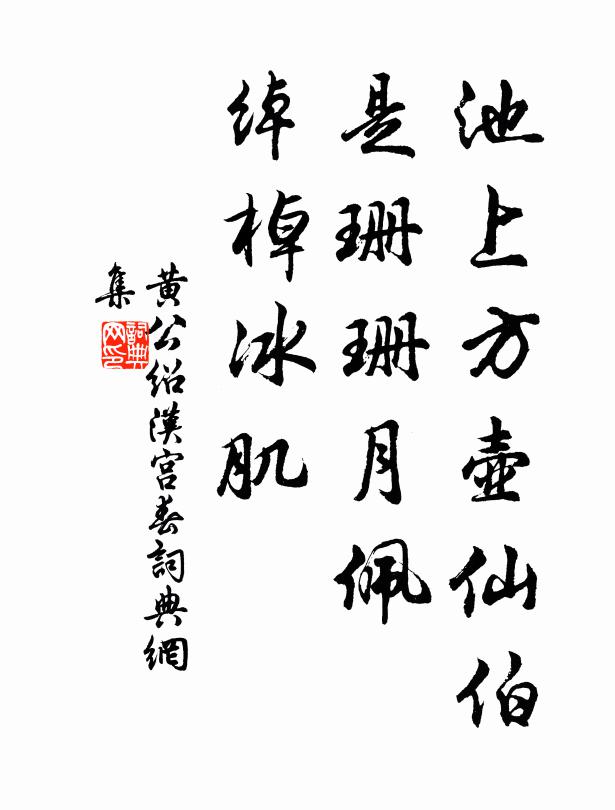 池上方壺仙伯
是珊珊月佩
綽棹冰肌
黃公紹漢宮春詞典網
集
詞典
网印